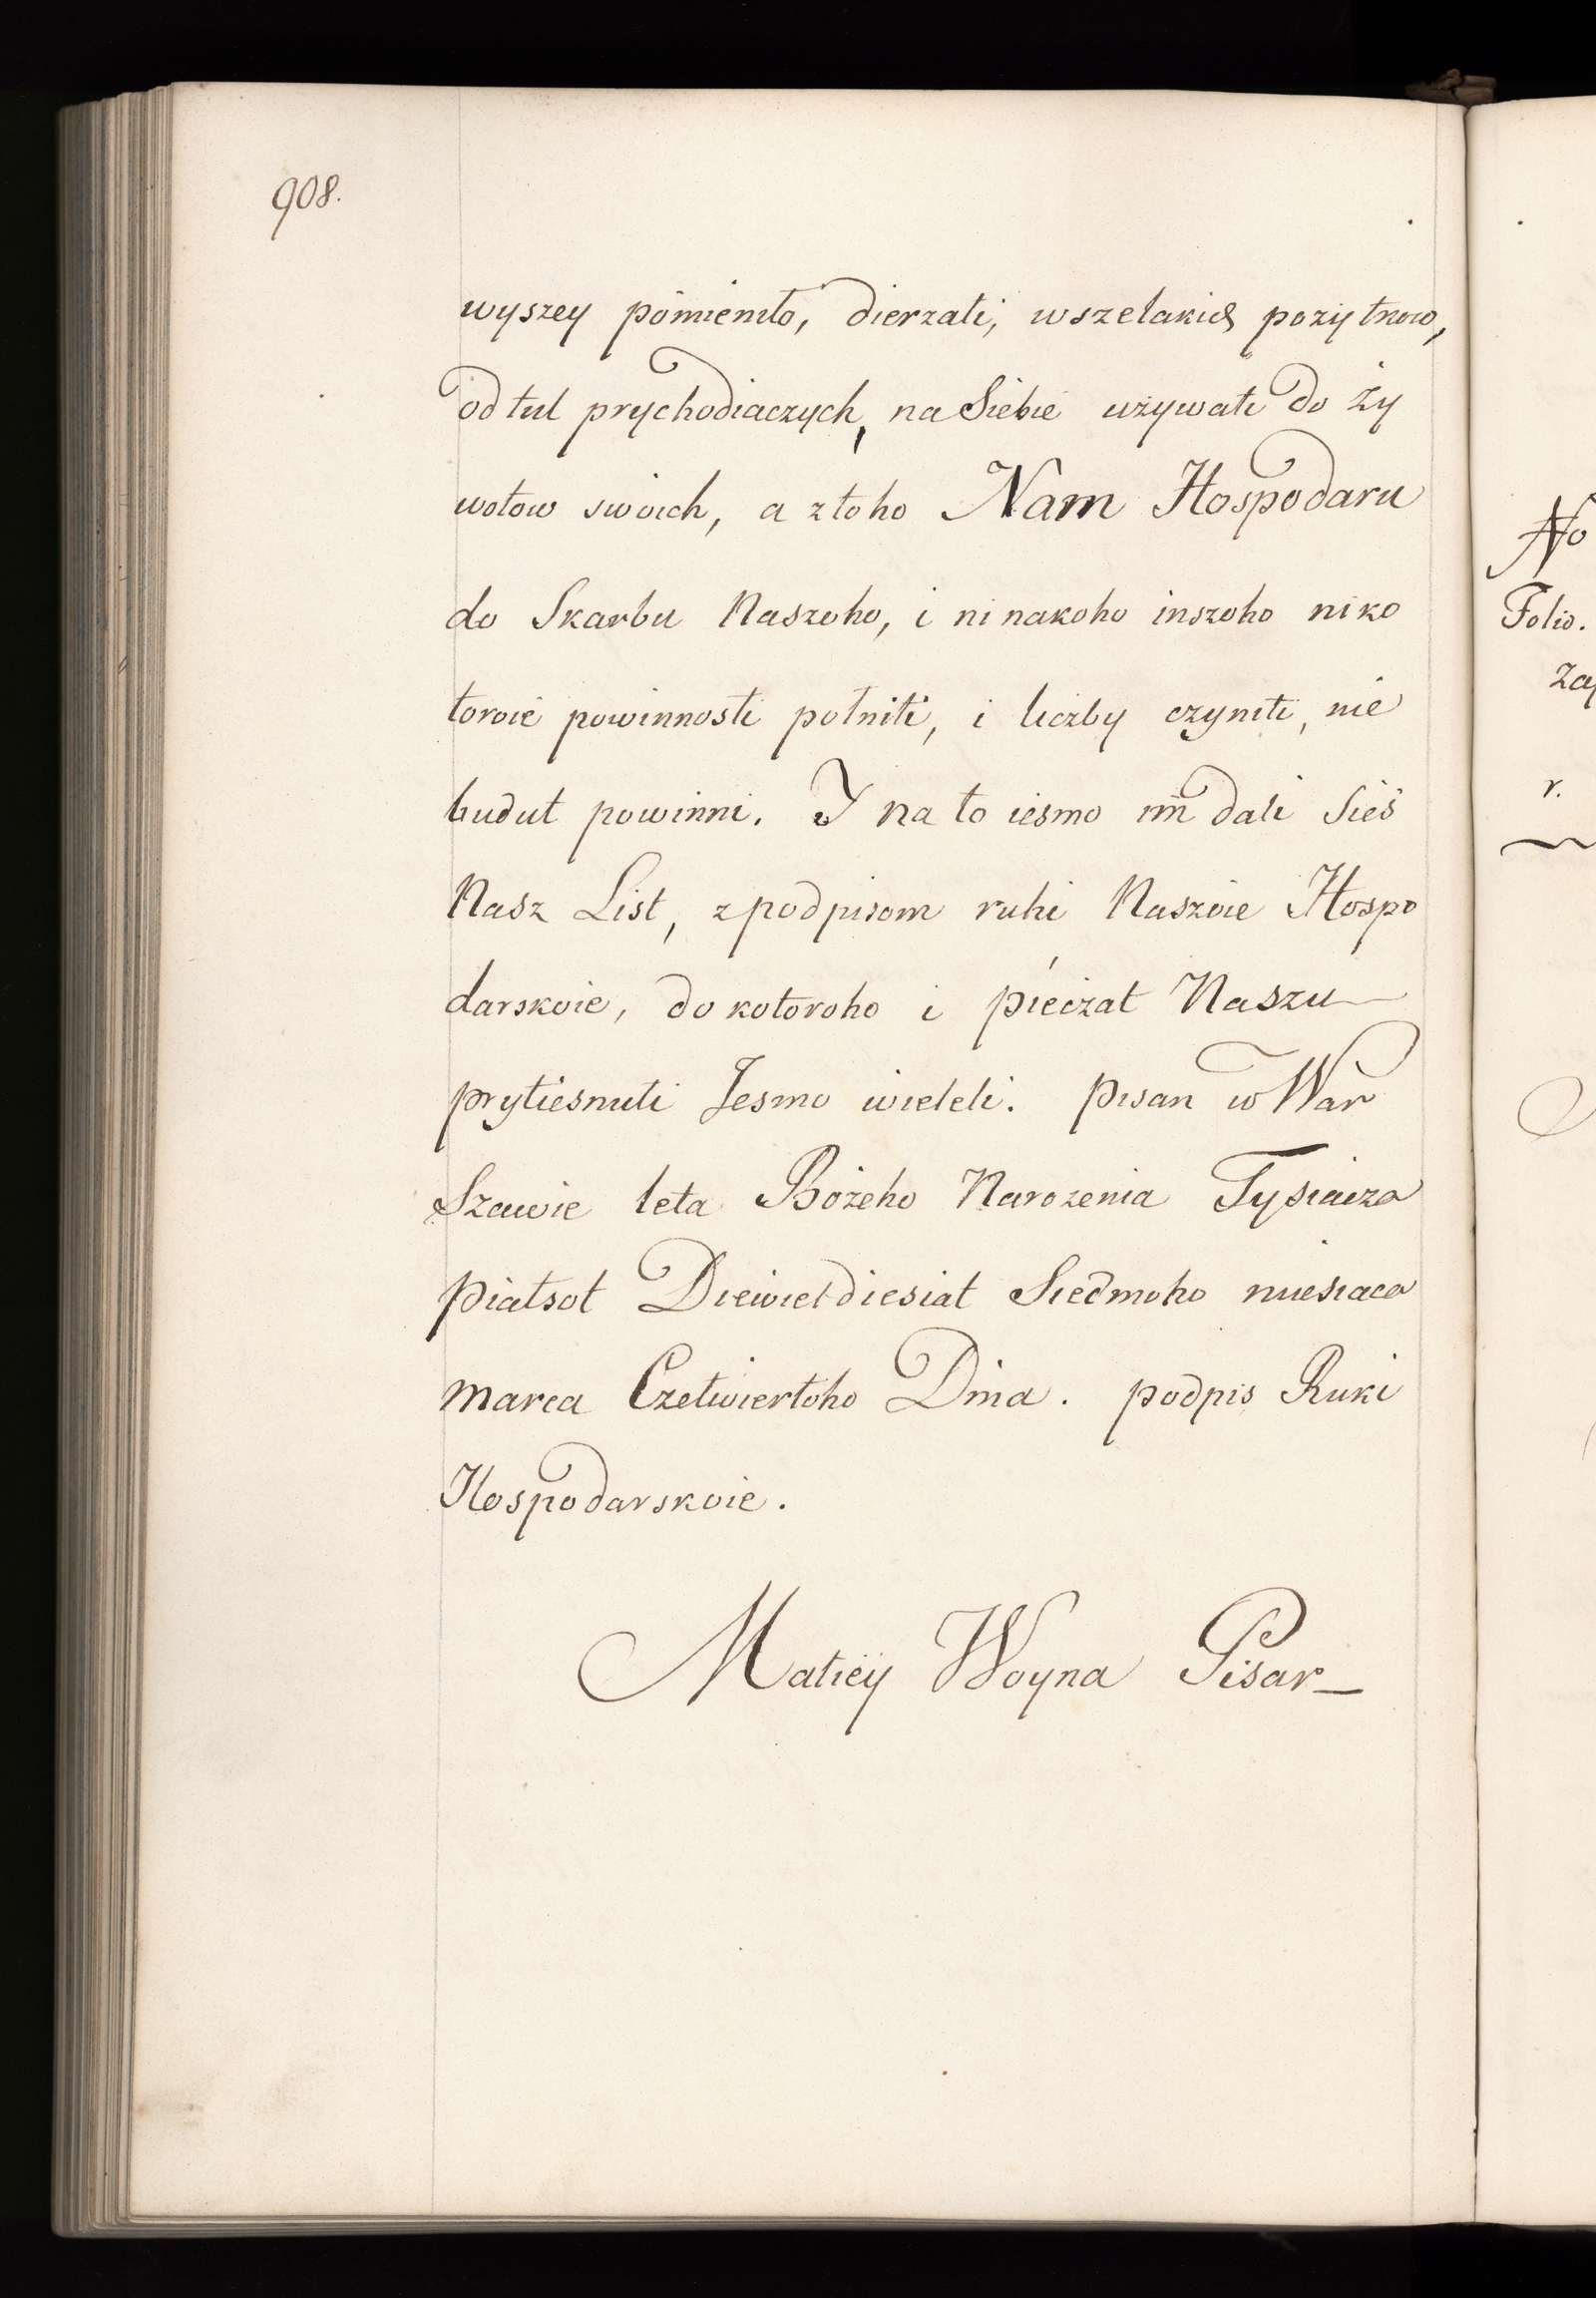 908.
wyszey pomienito, dierzati, wszelakich pozytkow,
odtul prychodiaczych, na Siebie uzywati do ży
wotow swoich, a ztoho Nam Hospodaru
do Skarbu Naszoho, i ni nakoho inszoho niko
toroie powinnosti połniti, i liczby czyniti, nie
budut powinni. I na to iesmo im dali Sieś
Nasz List, zpodpisom ruki Naszoie Hospo
darskoie, do kotoroho i pieczat Naszu
prytiesnuti Jesmo wieleli. pisan w War
Szawie leta Bożeho Narozenia Tysiacza
piatsot Diewietdiesiat Siedmoho miesiaca
marca Czetwiertoho Dnia. podpis Ruki
Hospodarskoie.
Matiey Woyna Pisar_
No
Folio.
r.